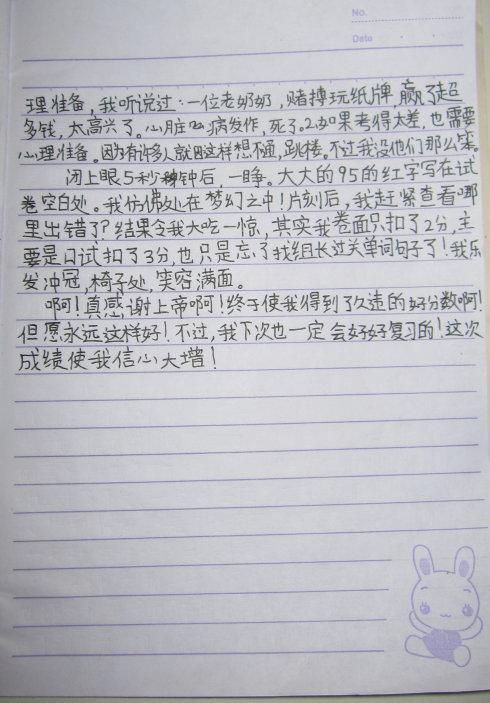 No.
Date
理准备，我听说过：一位老奶奶，赌搏玩纸牌，赢了超
多钱，太高兴了。心脏心病发作，死了。2.如果考得太差，也需要
心理准备。因为有许多人就因这样想不通，跳楼。不过我没他们那么笨。
闭上眼5秒钟后，一睁。大大的95的红字写在试
卷空白处。我仿佛处在梦幻之中！片刻后，我赶紧查看哪
里出错了？结果令我大吃一惊，其实我卷面只扣了2分，主
要是口试扣了3分，也只是忘了找组长过关单词句子了！我乐
发冲冠，椅子处，笑容满面。
啊！真感谢上帝啊！终于使我得到了久违的好分数啊！
但愿永远这样好！不过，我下次也一定会好好复习的！这次
成绩使我信心大增！